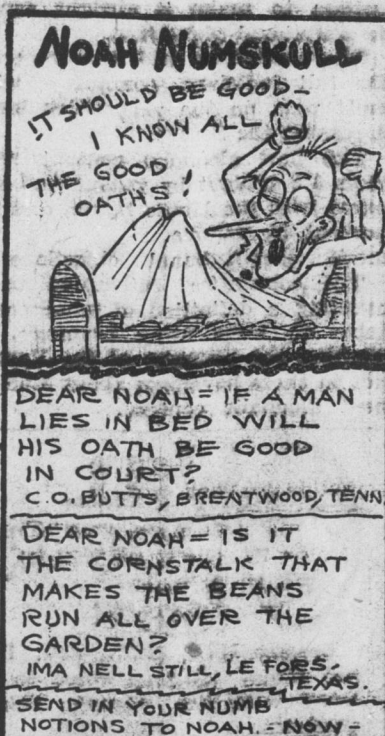 NOAH NUMSKULL
IT SHOULD BE GOOD -
I KNOW ALL
THE GOOD
OATHS!
DEAR NOAH = IF A MAN
LIES IN BED WILL
HIS OATH BE GOOD
IN COURT?
C.O. BUTTS, BRENTWOOD, TENN
DEAR NOAH = IS IT
THE CORNSTALK THAT
MAKES THE BEANS
RUN ALL OVER THE
GARDEN?
IMA NELL STILL, LE FORS,
TEXAS.
SEND IN YOUR NUMB
NOTIONS TO NOAH. - NOW -